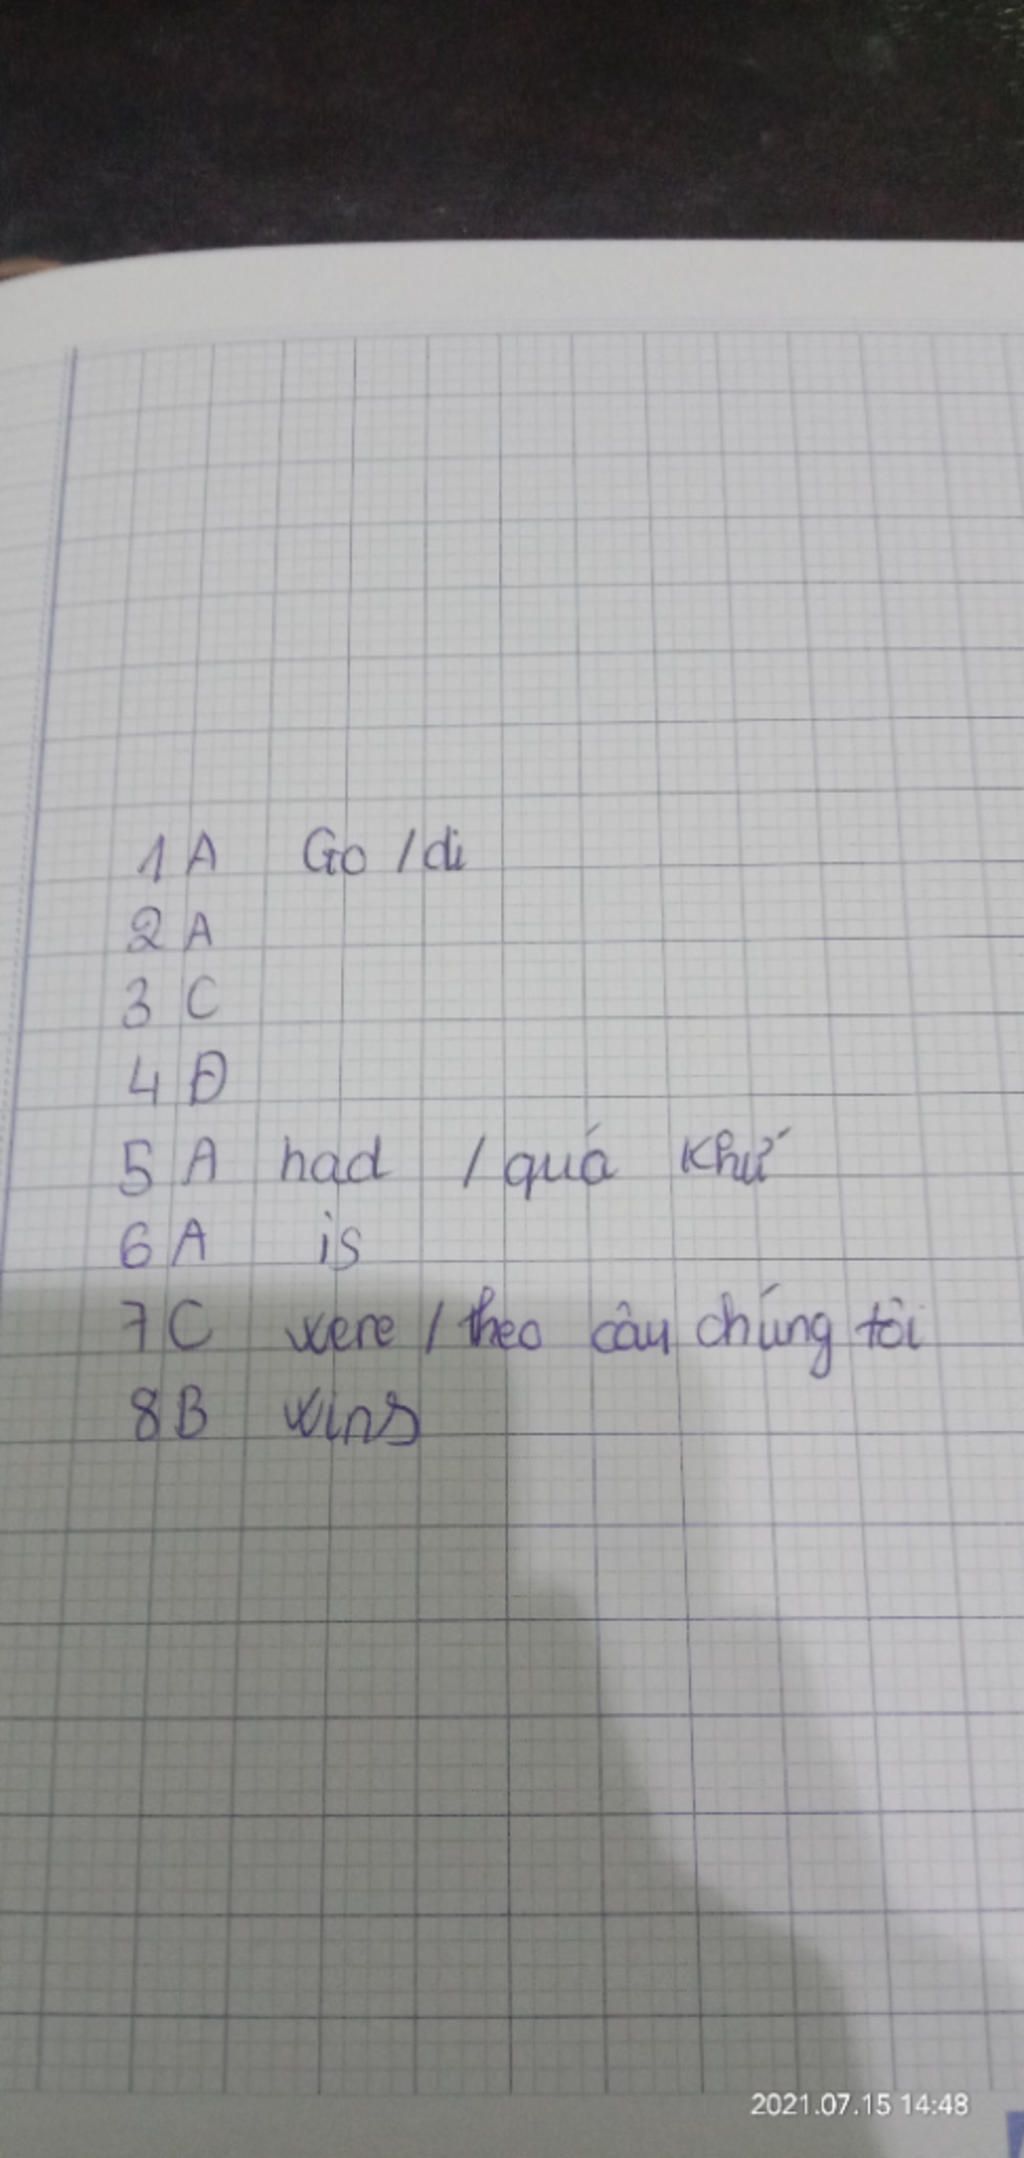 1 A Go / đi
2 A
3 C
4 D
5 A had / quá khứ
6 A is
7 C were / theo câu chúng tôi
8 B wins
2021.07.15 14:48